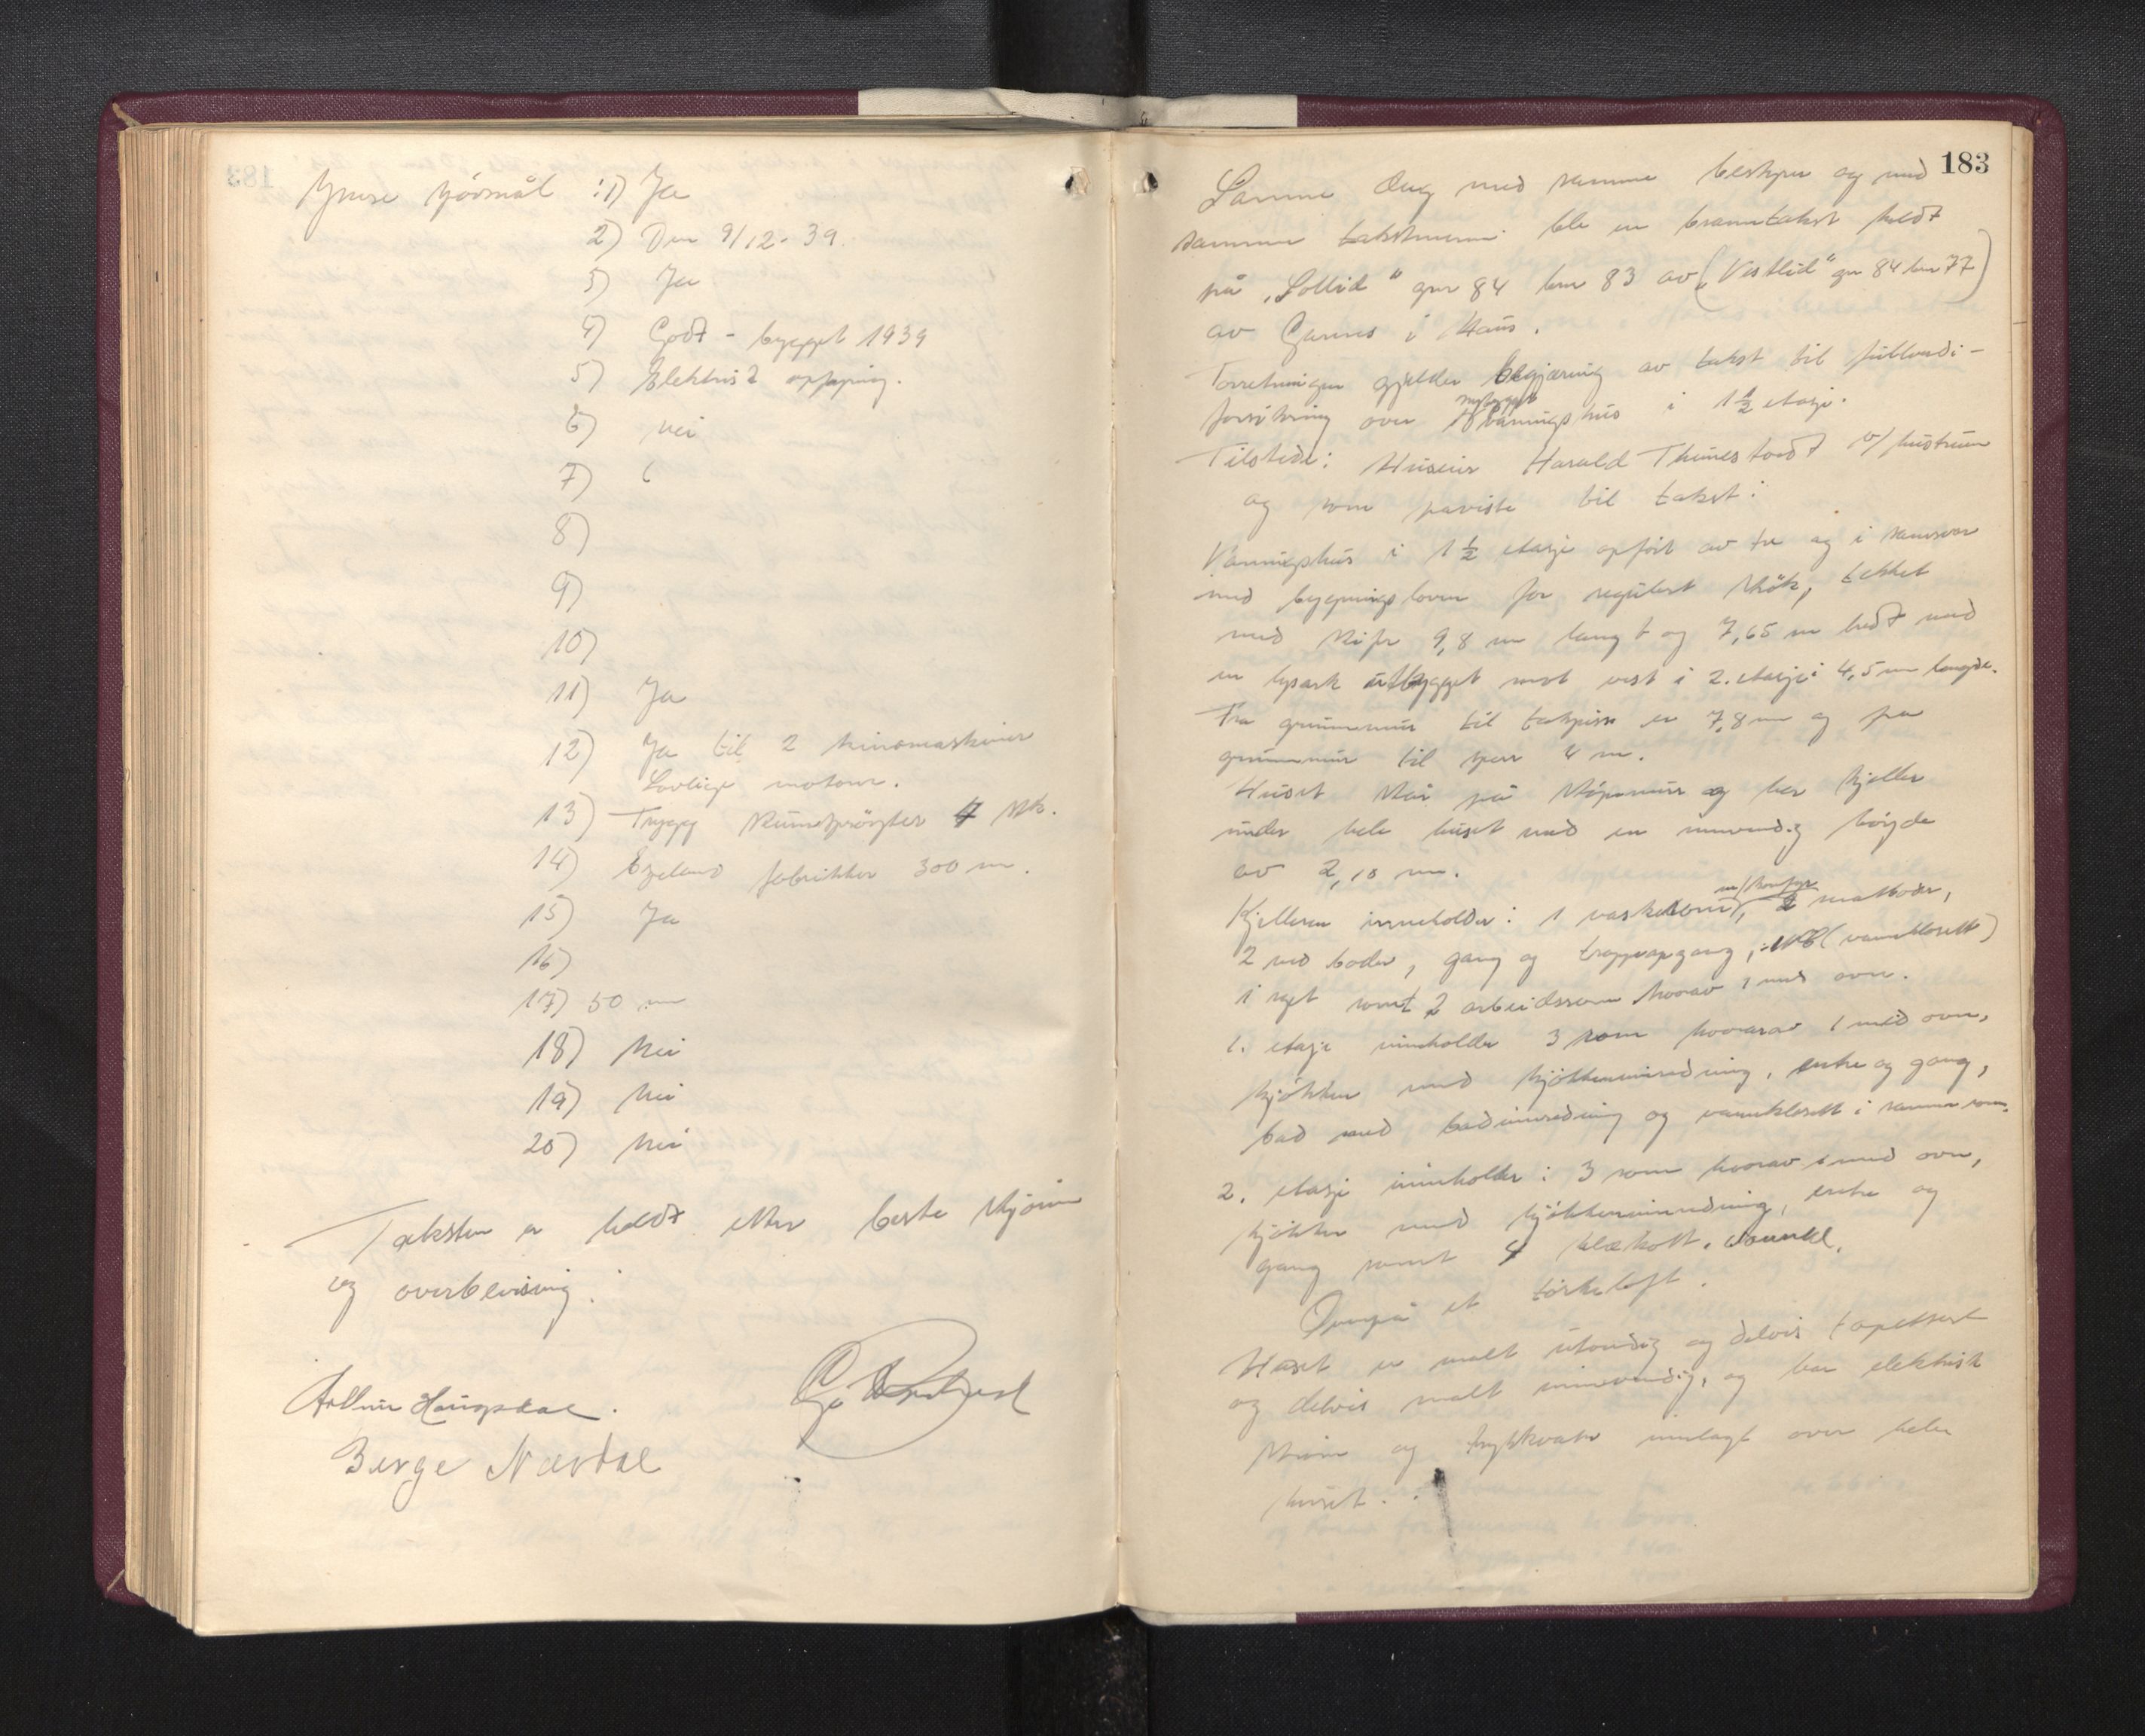 Ymse spörsmål : 1) Ja
2) Den 9/12 - 39.
3) Ja
4) Godt - bygget 1939
5) Elektrisk oppvarming.
6) Nei
7)
8)
9)
10)
11) Ja
12) Ja til 2 kinomaskiner
Lovlige motorer.
13) Trygg 4 stk.
14) fabrikker 300 m.
15) Ja
16)
17) 50 m
18) Nei
19) Nei
20) Nei
Taksten er holdt etter beste skjönn
og overbevisning.
Arthur Haugsdal.
Berge Nævdal
183
Samme dag med samme bestyrer og med
samme takstmenn ble en branntakst holdt
på „Sollid" gnr 84 bnr 83 av („Vestlid" gnr 84 bnr 77)
av Garnes i Haus.
Forretningen gjelder begjæring av takst til fullverdi-
forsikring over nybygget våningshus i 1½ etasje.
Tilstede: Huseier Harald v/ hustrum
og som paviste til takst:
Våningshus i 1½ etasje opfört av tre og i samsvar
med bygningsloven for regulert strök, tekket
med skifer 9,8 m langt og 7,65 m bredt med
en lysark utbygget mot vest i 2. etasje i 4,5 m lengde.
Fra grunnmur til takspiss er 7,8 m og fra
grunnmur til sperr 4 m.
Huset står på stöpemur og har kjeller
under hele huset med en innvendig höyde
av 2,10 m.
Kjelleren inneholder: 1 vaskerom, m/komfyr 2 matboder,
2 ved boder, gang og trappeopgang, (vannklosett)
i eget rom 2 arbeidsrom hvorav 1 med ovn.
1. etasje inneholder 3 rom hvorav 1 med ovn,
kjökken med kjökkeninnredning, entre og gang,
bad med badinnredning og vannklosett i samme rom.
2. etasje inneholder: 3 rom hvorav 1 med ovn,
kjökken med kjökkeninnredning, entre og
gang samt 4 klækott, vannkl.
Ovenpå et törkeloft.
Huset er malt utvendig og delvis tapetsert
og delvis malt innvendig, og har elektrisk
ström og trykkvatn innlagt over hele
huset.